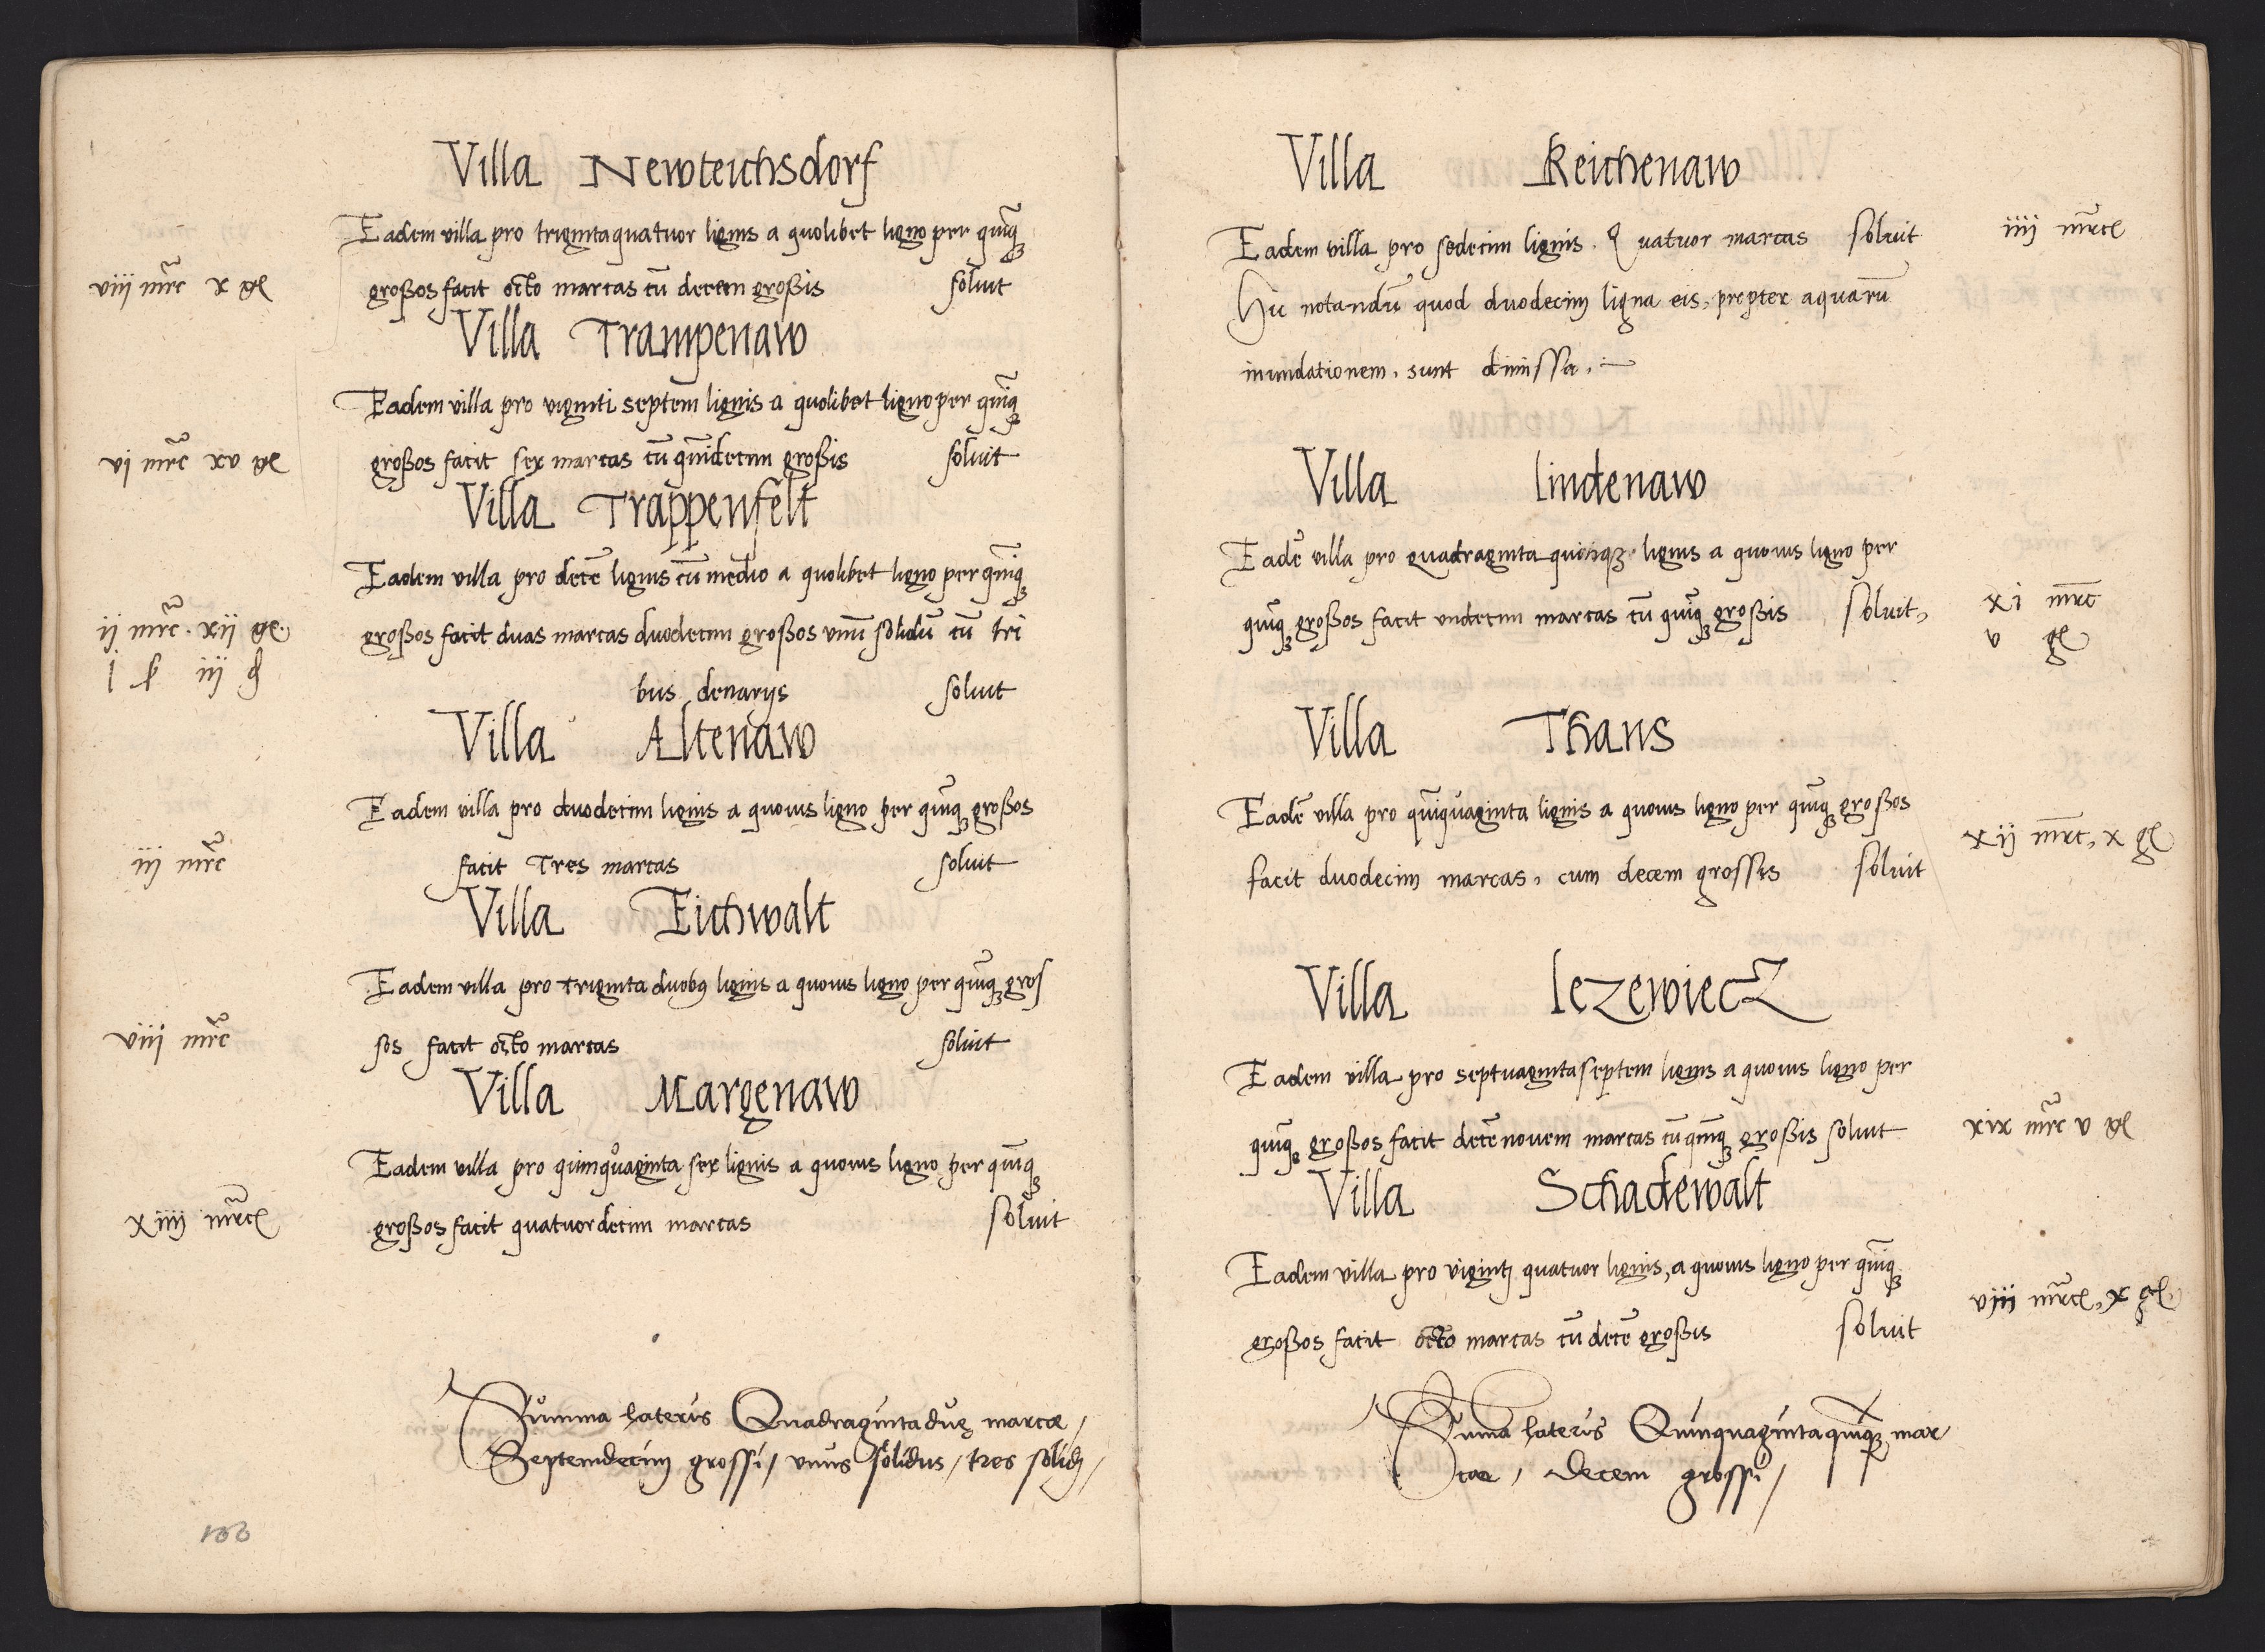 Villa Newteichsdorf
Eadem villa pro trigintaquatuor lignis a quolibet ligno per quinq̃
viii mrc x gl
großos facit octo marcas cũ decem großis soluit
Villa Trampenaw
Eadem villa pro viginti septem lignis a quolibet ligno per quinq̃
vi mrc xv gl
großos facit sex marcas cũ quĩdecim großis soluit
Villa Trappenfelt
Eadem villa pro decẽ lignis cũ medio a quolibet ligno per quinq̃
ii mrc . xii gl.
großos facit duas marcas duodecim großos vnũ solidũ cũ tri
i ß iii ₰
bus denarijs soluit
Villa Altenaw
Eadem villa pro duodecim lignis a quouis ligno per quinq̃ großos
iii mrc
facit Tres marcas soluit
Villa Eichwalt
Eadem villa pro Triginta duobꝯ lignis a quouis ligno per quinq̃ gros
viii mrc
sos facit octo marcas soluit
Villa Margenaw
Eadem villa pro quinquaginta sex lignis a quouis ligno per quinq̃
xiiii mrcl
großos facit quatuordecim marcas soluit
Summa lateris Quadragintaduę marcæ /
Septemdecim grossi / vnus solidus / tres solidj /
Villa Reichenaw
Eadem villa pro sedecim lignis . Quatuor marcas soluit
iiii mrcl
Hic notandũ quod duodecim ligna eis, propter aquarũ
inundationem, sunt dimissa.
Villa lindenaw
Eadẽ villa pro quadraginta quinqꝫ lignis a quouis ligno per
quinq̃ großos facit vndecim marcas cũ quinq̃ großis soluit,
xi mrc
v gl
Villa Thans
Eadẽ villa pro quĩquaginta lignis a quouis ligno per quinq̃ großos
xii mrc, x gl
facit duodecim marcas, cum decem grossis soluit
Villa lezewiecz
Eadem villa pro septuagintaseptem lignis a quouis ligno per
quinq̃ großos facit decẽnouem marcas cũ quinq̃ großis soluit
xix mrc v gl
Villa Schadewalt
Eadem villa pro vigintj quatuor lignis, a quouis ligno per quinq̃
viii mrcl, x gl
großos facit octo marcas cũ decẽ großis soluit
Suma lateris Quinquagintaquinqꝫ mar/
cæ, decem grossi /